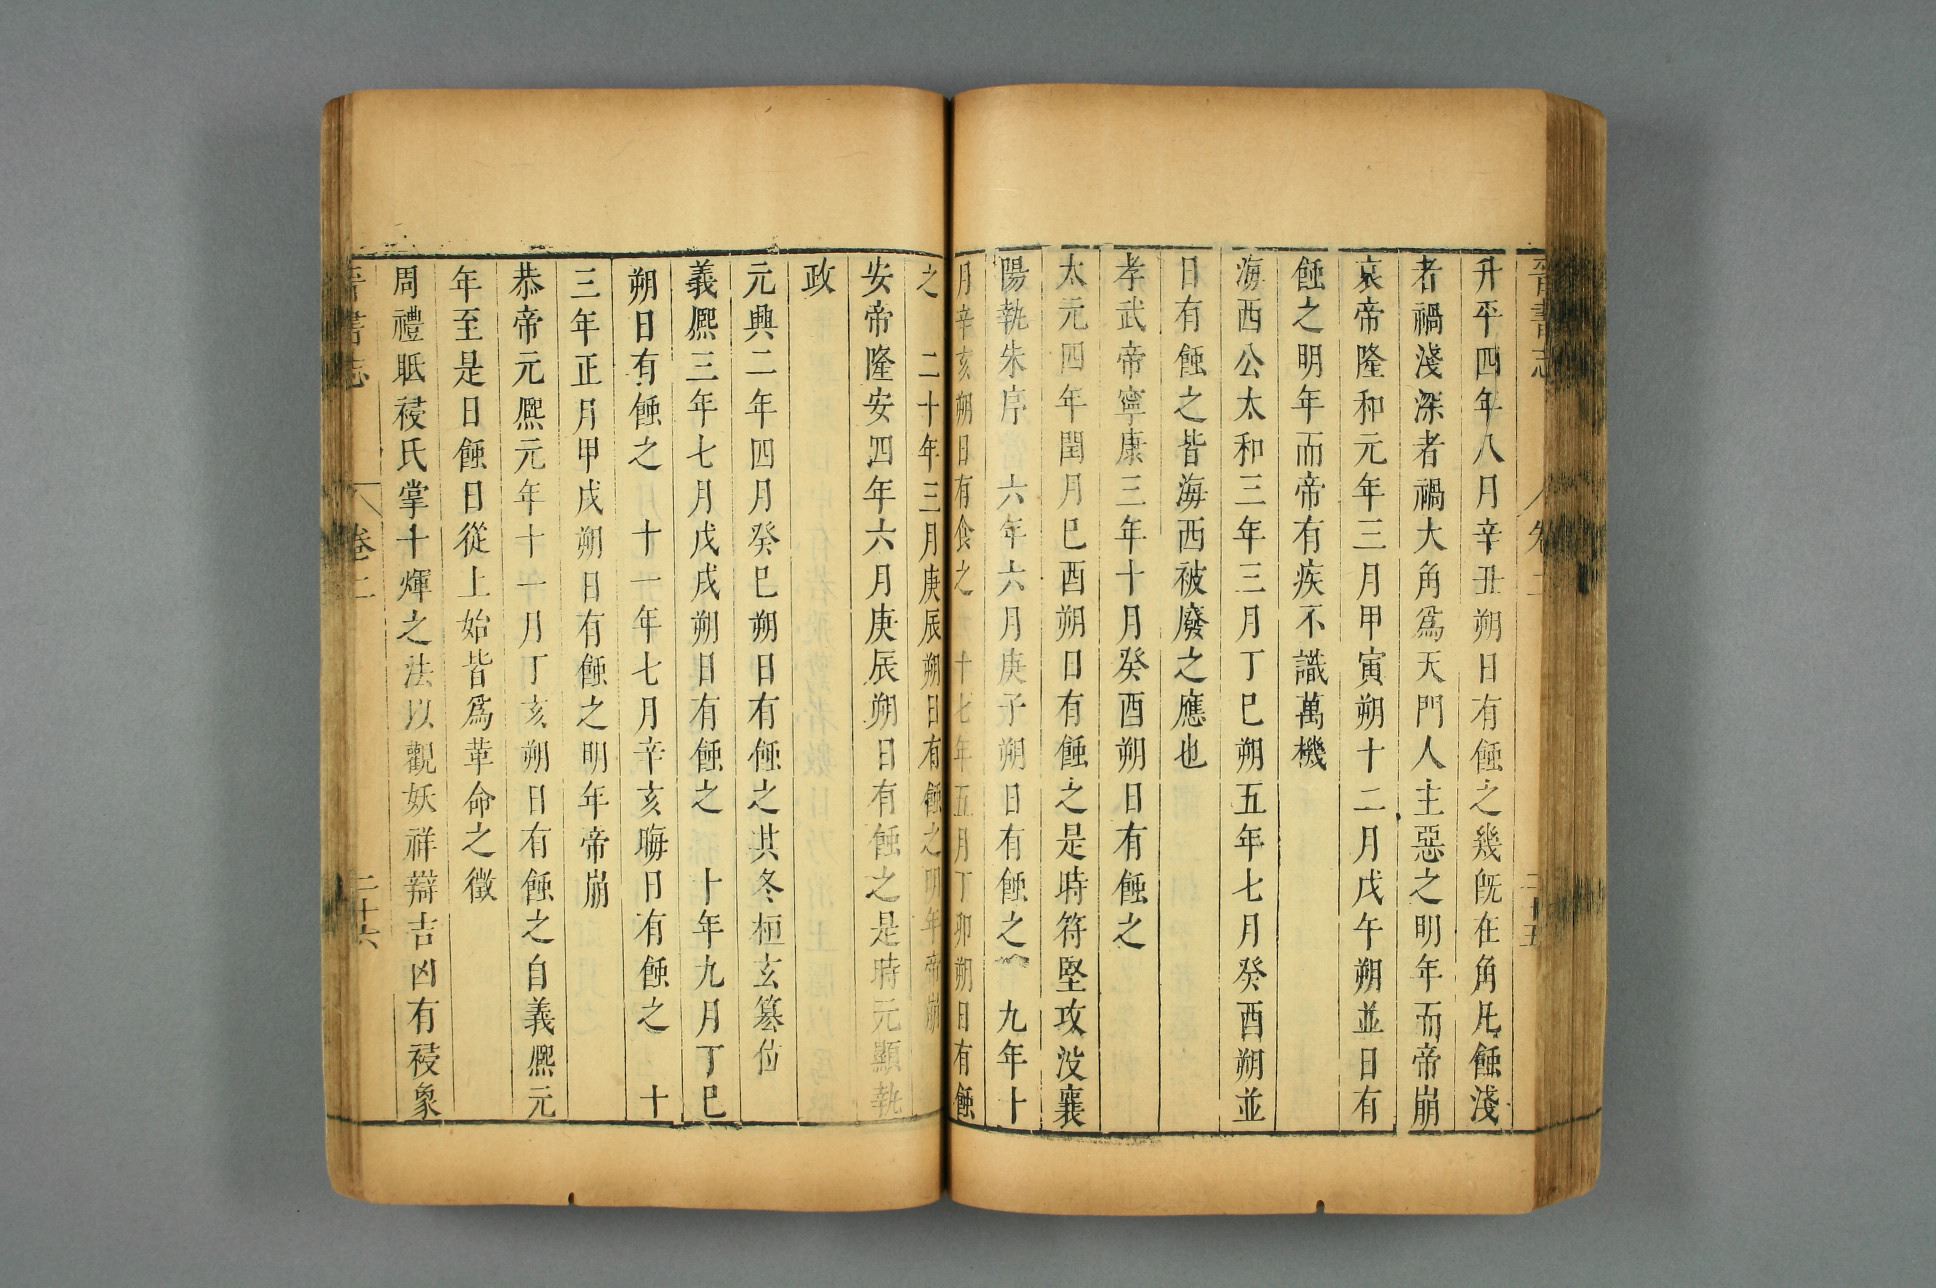 晉書志 卷二 二十五
升平四年八月辛丑朔日有蝕之幾旣在角凡蝕淺
者禍淺深者禍大角爲天門人主惡之明年而帝崩
哀帝隆和元年三月甲寅朔十二月戊午朔並日有
蝕之明年而帝有疾不識萬機
海西公太和三年三月丁巳朔五年七月癸酉朔並
日有蝕之皆海西被廢之應也
孝武帝寧康三年十月癸酉朔日有蝕之
太元四年閏月巳酉朔日有蝕之是時符堅攻沒襄
陽執朱序 六年六月庚子朔日有蝕之 九年十
月辛亥朔日有食之 十七年五月丁卯朔日有蝕
之 二十年三月庚辰朔日有蝕之明年帝崩
安帝隆安四年六月庚辰朔日有蝕之是時元顯執
政
元興二年四月癸巳朔日有蝕之其冬桓玄簒位
義熙三年七月戊戌朔日有蝕之 十年九月丁巳
朔日有蝕之 十一年七月辛亥晦日有蝕之 十
三年正月甲戌朔日有蝕之明年帝崩
恭帝元熙元年十一月丁亥朔日有蝕之自義熙元
年至是日蝕日從上始皆爲革命之徵
周禮眂祲氏掌十煇之法以觀妖祥辯吉凶有祲象
晉書志 卷二 二十六